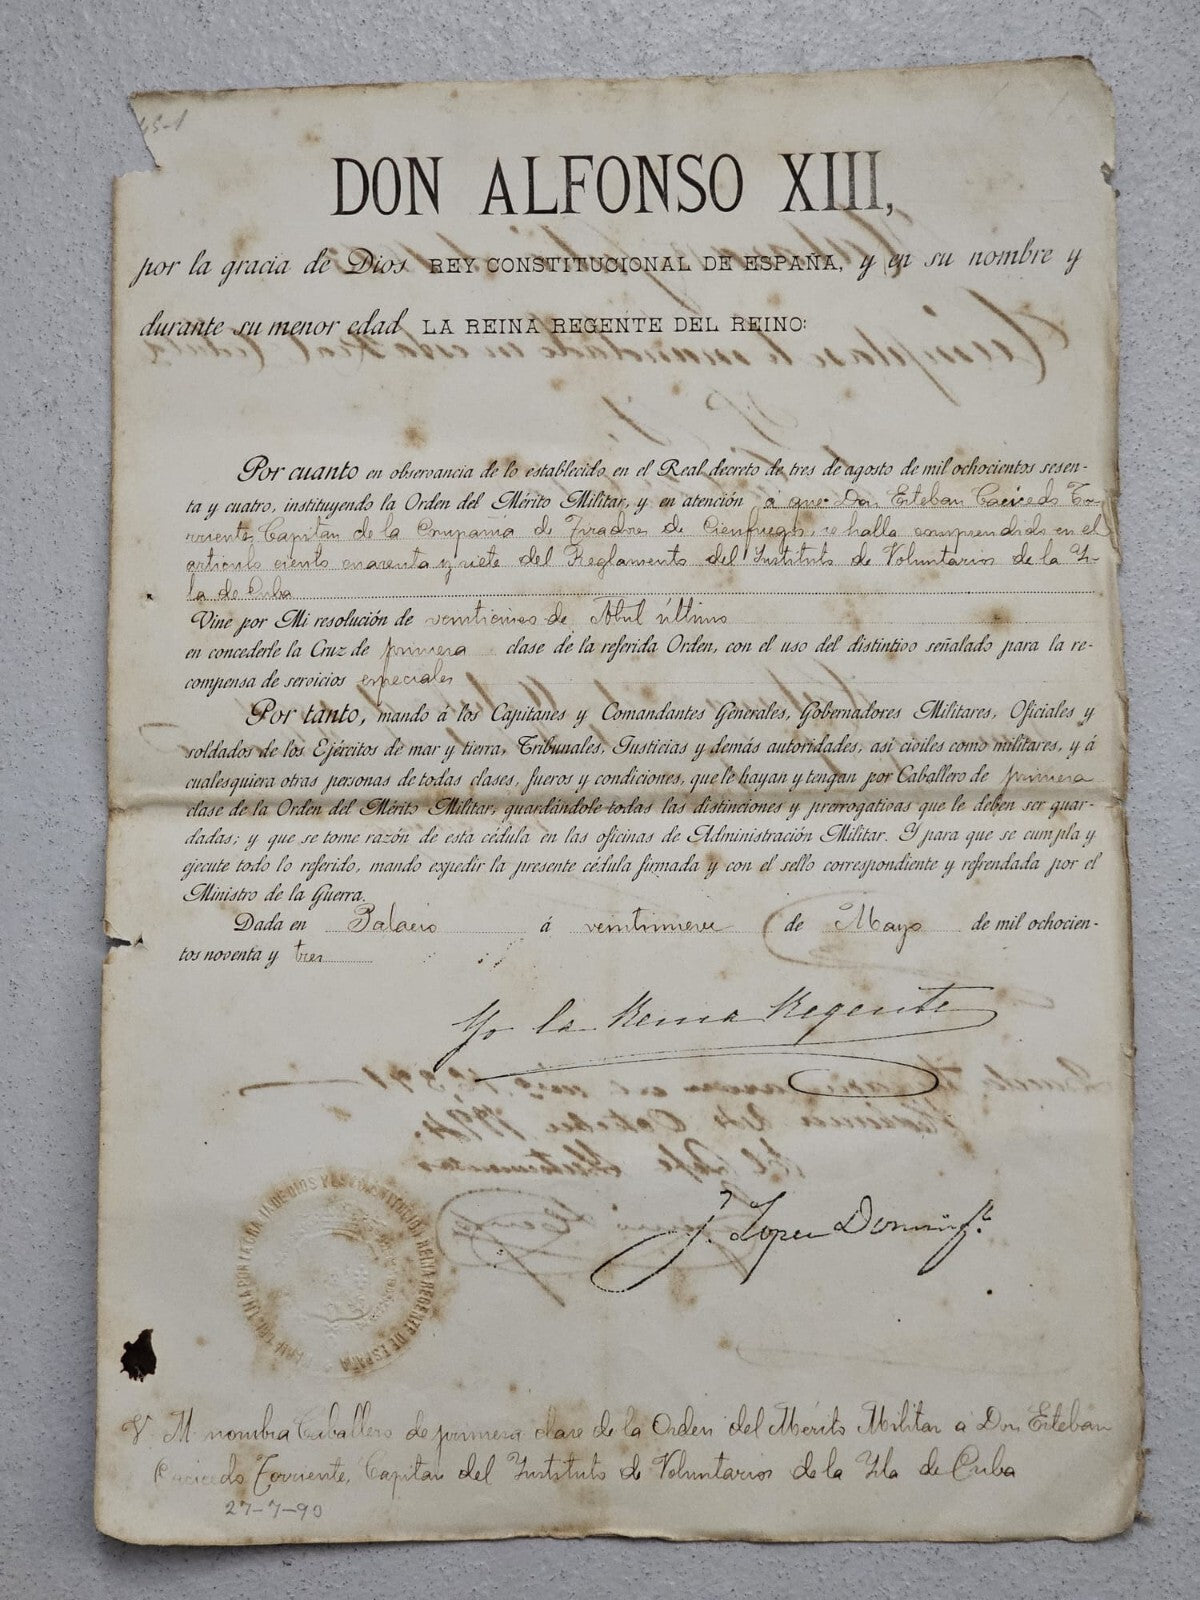 45-1
DON ALFONSO XIII,
por la gracia de Dios REY CONSTITUCIONAL DE ESPAÑA, y en su nombre y
durante su menor edad LA REINA REGENTE DEL REINO:
Por cuanto en observancia de lo establecido en el Real decreto de tres de agosto de mil ochocientos sesen-
ta y cuatro, instituyendo la Orden del Mérito Militar, y en atención á que Don Esteban Cacicedo To-
rriente, Capitan de la Compania de Tiradores de Cienfuegos, se halla comprendido en el
articulo ciento cuarenta y siete del Reglamento del Instituto de Voluntarios de la Ys-
la de Cuba
Vine por Mi resolución de de Abril último
en concederle la Cruz de primera clase de la referida Orden, con el uso del distintivo señalado para la re-
compensa de servicios especiales
Por tanto, mando á los Capitanes y Comandantes Generales, Gobernadores Militares, Oficiales y
soldados de los Ejércitos de mar y tierra, Tribunales, Justicias y demás autoridades, asi civiles como militares, y á
cualesquiera otras personas de todas clases, fueros y condiciones, que le hayan y tengan por Caballero de primera
clase de la Orden del Mérito Militar, guardándole todas las distinciones y prerrogativas que le deben ser guar-
dadas; y que se tome razón de esta cédula en las oficinas de Administración Militar. Y para que se cumpla y
ejecute todo lo referido, mando expedir la presente cédula firmada y con el sello correspondiente y refrendada por el
Ministro de la Guerra.
Dada en Palacio á veintinueve de Mayo de mil ochocien-
tos noventa y tres
Yo la Reina Regente
J. Lopez Domingz.
POR LA GRACIA DE DIOS Y LA CONSTITUCION REINA REGENTE DE ESPAÑA
V. M. nombra Caballero de primera clase de la Orden del Mérito Militar a Don Esteban
Cacicedo Torriente, Capitan del Instituto de Voluntarios de la Ysla de Cuba
27-7-90